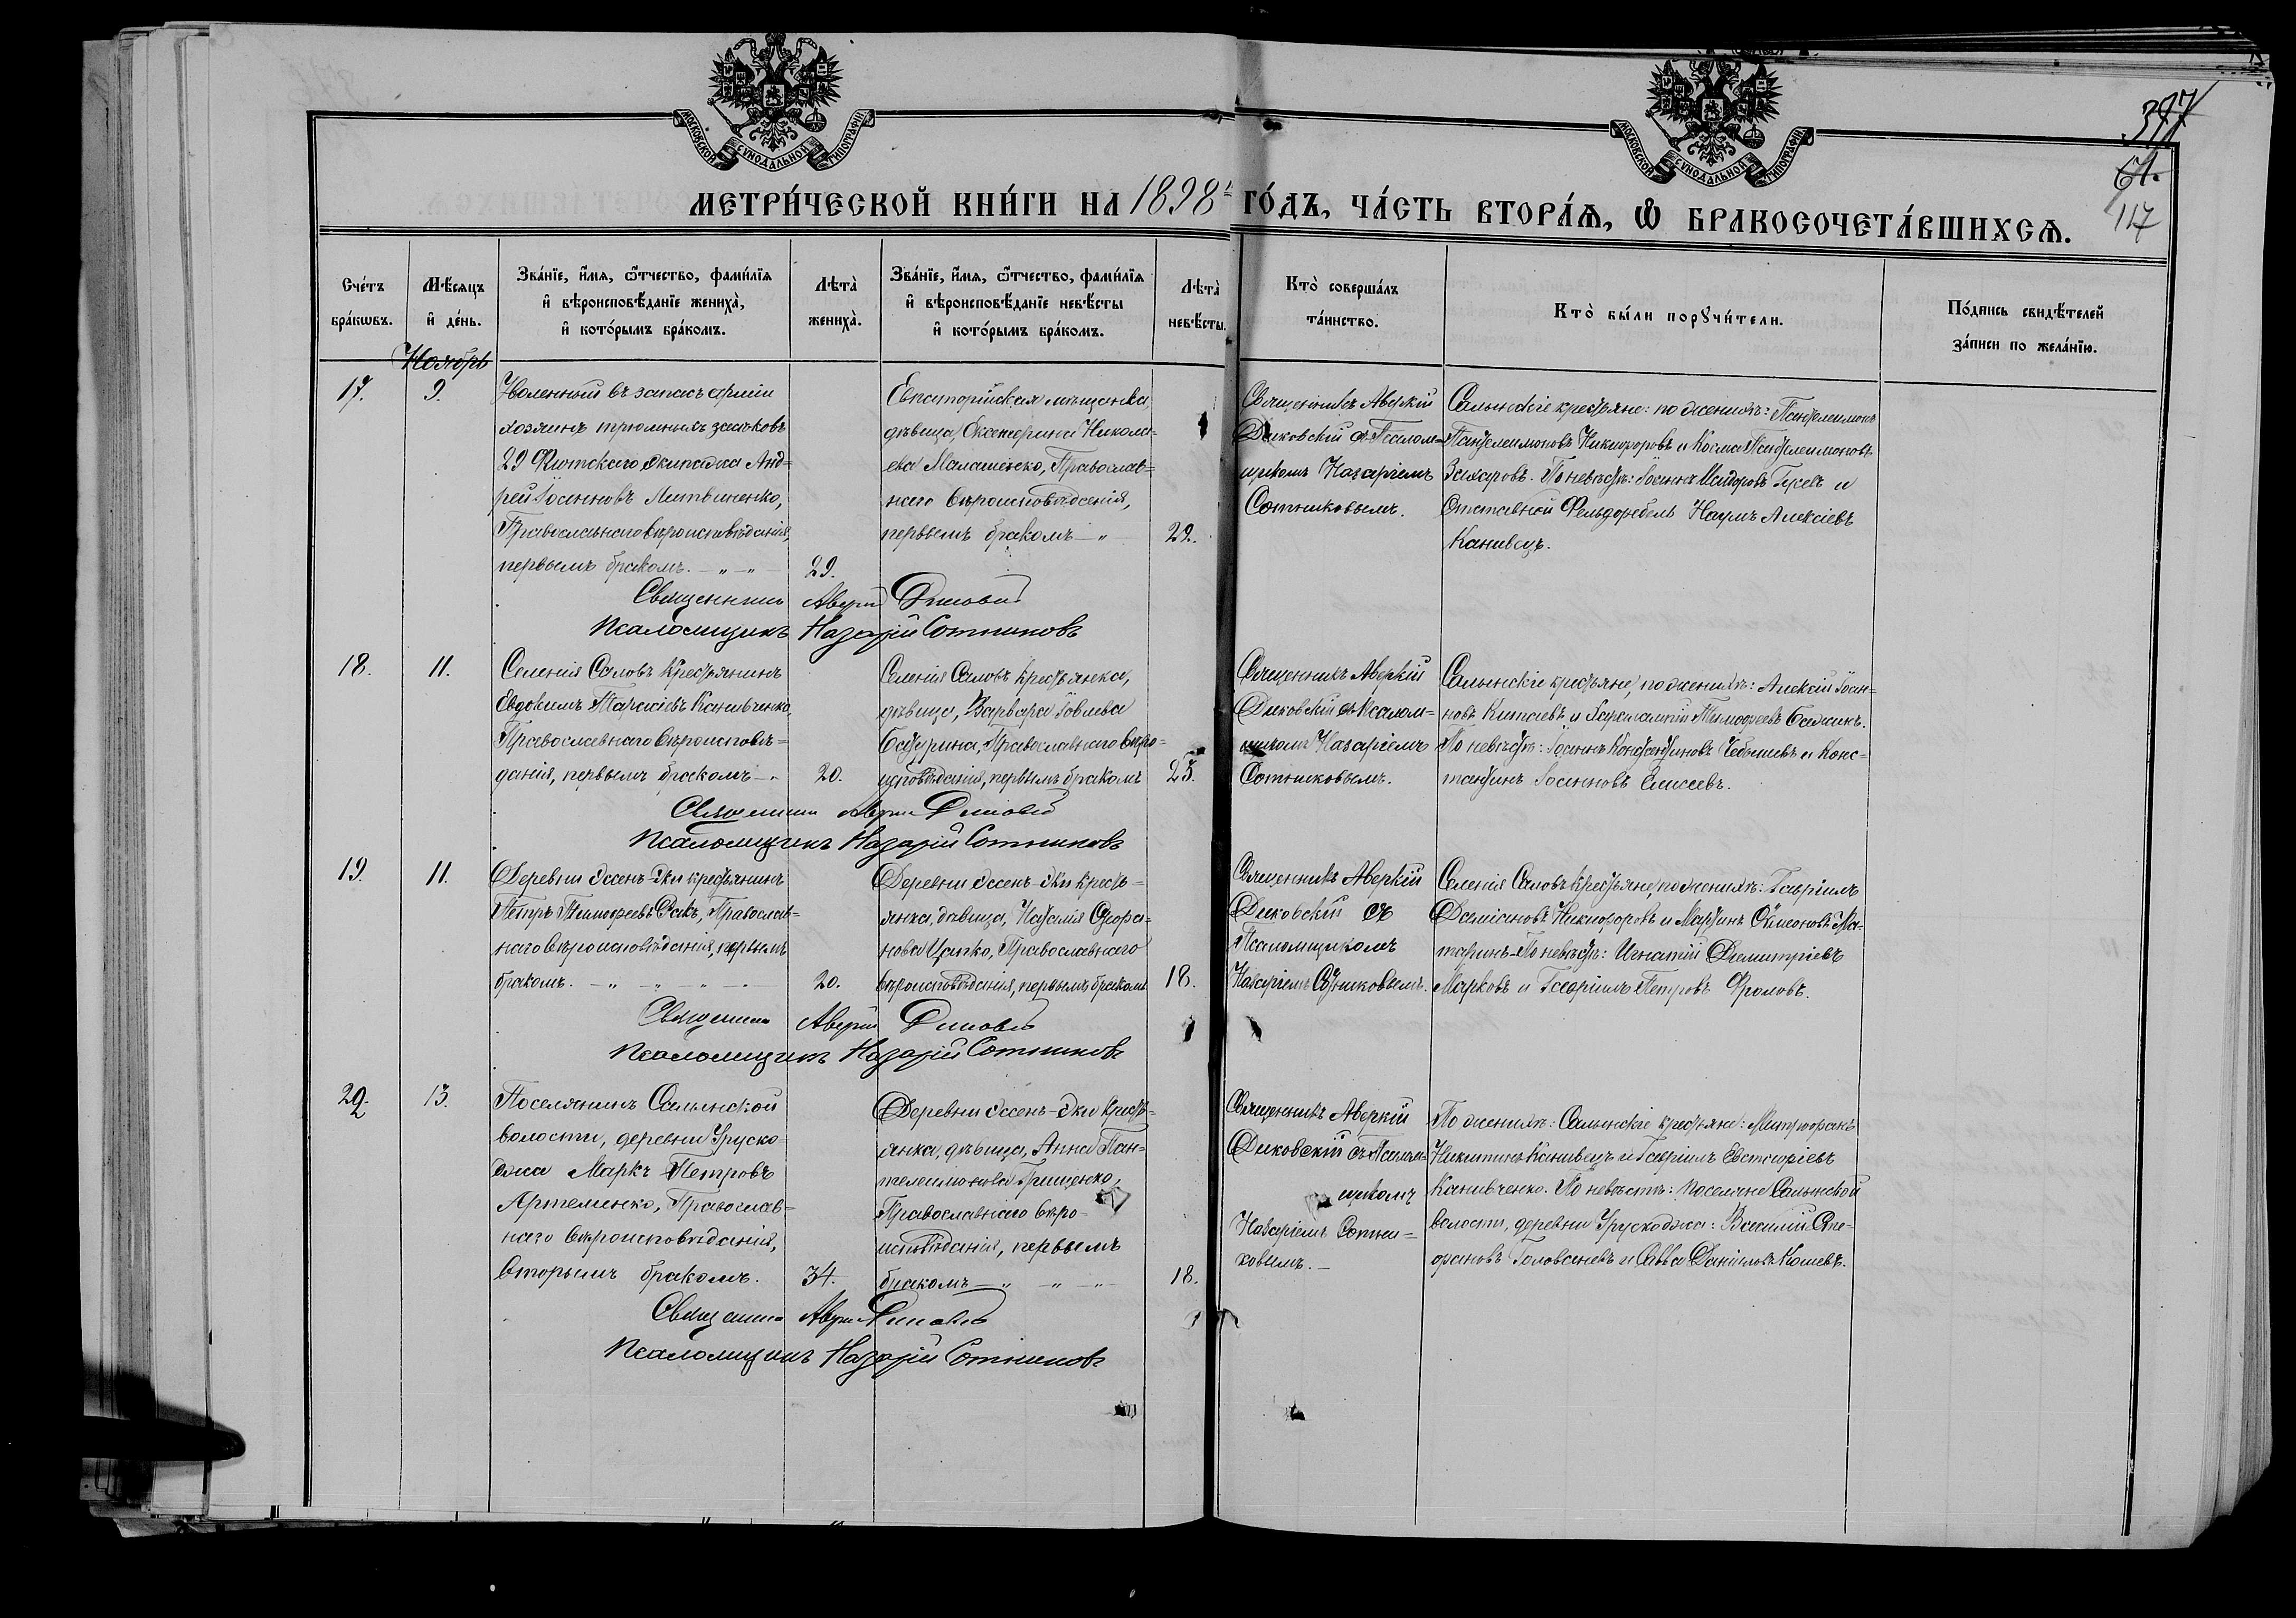 МОСКОВСКОЙ СУНОДАЛЬНОЙ ТИПОГРАФІИ
МОСКОВСКОЙ СУНОДАЛЬНОЙ ТИПОГРАФІИ
61.
117
МЕТРИ́ЧЕСКОЙ КНИ́ГИ НА 1898 ГО́ДЪ, ЧА́СТЬ ВТОРА́Ѧ, Ѿ БРАКОСОЧЕТА́ВШИХСѦ.
Сче́тъ бра́кѡвъ.
Мѣ́сяцъ и҆ де́нь.
Зва́нїе, и҆́мѧ, ѻ҆́тчество, фами́лїѧ
и҆ вѣроисповѣ́данїе жениха̀,
и҆ кото́рымъ бра́комъ.
Лѣта̀ жениха̀.
Зва́нїе, и҆́мѧ, ѻ҆́тчество, фами́лїѧ
и҆ вѣроисповѣ́данїе невѣ́сты
и҆ кото́рымъ бра́комъ.
Лѣта̀ невѣ́сты.
Кто̀ соверша́лъ
та́инство.
Кто̀ бы́ли порꙋчи́тели.
По́дпись свидѣ́телей
за́писи по жела́нїю.
Ноябрь
17.
9.
Уволенный въ запасъ арміи
хозяинъ трюмныхъ
29 Флотскаго экипажа Анд=
рей Іоанновъ Литвиненко,
Православнаго вѣроисповѣданія,
первымъ бракомъ. — „ — „
29.
Евпаторійская мѣщанка
дѣвица, Екатерина Никола=
ева Малашенко, Православ=
наго вѣроисповѣданія,
первымъ бракомъ — „
22.
Священникъ Аверкій
Диковскій съ Псалом=
щикомъ Назаріемъ
Сотниковымъ.
Салынскіе крестьяне: по женихѣ: Пантелеимонъ
Пантелеимоновъ Никифоровъ и Косма Пантелеимоновъ
Захаровъ. По невѣстѣ: Іоаннъ Исидоровъ Гусевъ и
Отставной Фельдфебель Наумъ Алексіевъ
Канивецъ.
Священникъ Аверкій Диковскій
Псаломщикъ Назарій Сотниковъ
18.
11.
Селенія Саловъ крестьянинъ
Евдокимъ Тарасіевъ Канивченко,
Православнаго вѣроисповѣ=
данія, первымъ бракомъ —„
20.
Селенія Саловъ крестьянка,
дѣвица, Варвара Іовлева
Батурина, Православнаго вѣро=
исповѣданія, первымъ бракомъ
25.
Священникъ Аверкій
Диковскій съ Псалом=
щикомъ Назаріемъ
Сотниковымъ.
Салынскіе крестьяне, по женихѣ: Алексій Іоан=
новъ Китаевъ и Харалампій Тимофеевъ Бажикъ.
По невѣстѣ: Іоаннъ Константиновъ Чебышевъ и Конс=
тантинъ Іоанновъ Елисеевъ.
Священникъ Аверкій Диковскій
Псаломщикъ Назарій Сотниковъ
19.
11.
Деревни Эссенъ-Эки крестьянинъ
Петръ Тимофеевъ Сакъ, Православ=
наго вѣроисповѣданія, первымъ
бракомъ. — „ — „ — „ —
20.
Деревни Эссенъ-Эки кресть=
янка, дѣвица, Наталія Стефа=
нова Цапко, Православнаго
вѣроисповѣданія, первымъ бракомъ
18.
Священникъ Аверкій
Диковскій съ
Псаломщикомъ
Назаріемъ Сотниковымъ.
Селенія Саловъ крестьяне, по женихѣ: Гавріилъ
Даміановъ Никифоровъ и Мартинъ Симеоновъ Ма-
таринъ. По невѣстѣ: Игнатій Димитріевъ
Марковъ и Гавріилъ Петровъ Фроловъ.
Священникъ Аверкій Диковскій
Псаломщикъ Назарій Сотниковъ
20.
13.
Поселянинъ Салынской
волости, деревни Уруско-
джа Маркъ Петровъ
Артеменко, Православ=
наго вѣроисповѣданія,
вторымъ бракомъ.
34.
Деревни Эссенъ-Эки кресть=
янка, дѣвица, Анна Пан=
телеимонова Грищенко,
Православнаго вѣро-
исповѣданія, первымъ
бракомъ — „ — „ — „
18.
Священникъ Аверкій
Диковскій съ Псалом-
щикомъ
Назаріемъ Сотни=
ковымъ. —
По женихѣ: Салынскіе крестьяне: Митрофанъ
Никитинъ Канивецъ и Гавріилъ Евстафіевъ
Канивченко. По невѣстѣ: поселяне Салынской
волости, деревни Урускоджа: Василій Сте-
фановъ Головачевъ и Савва Даніиловъ Кошевъ.
Священникъ Аверкій Диковскій
Псаломщикъ Назарій Сотниковъ